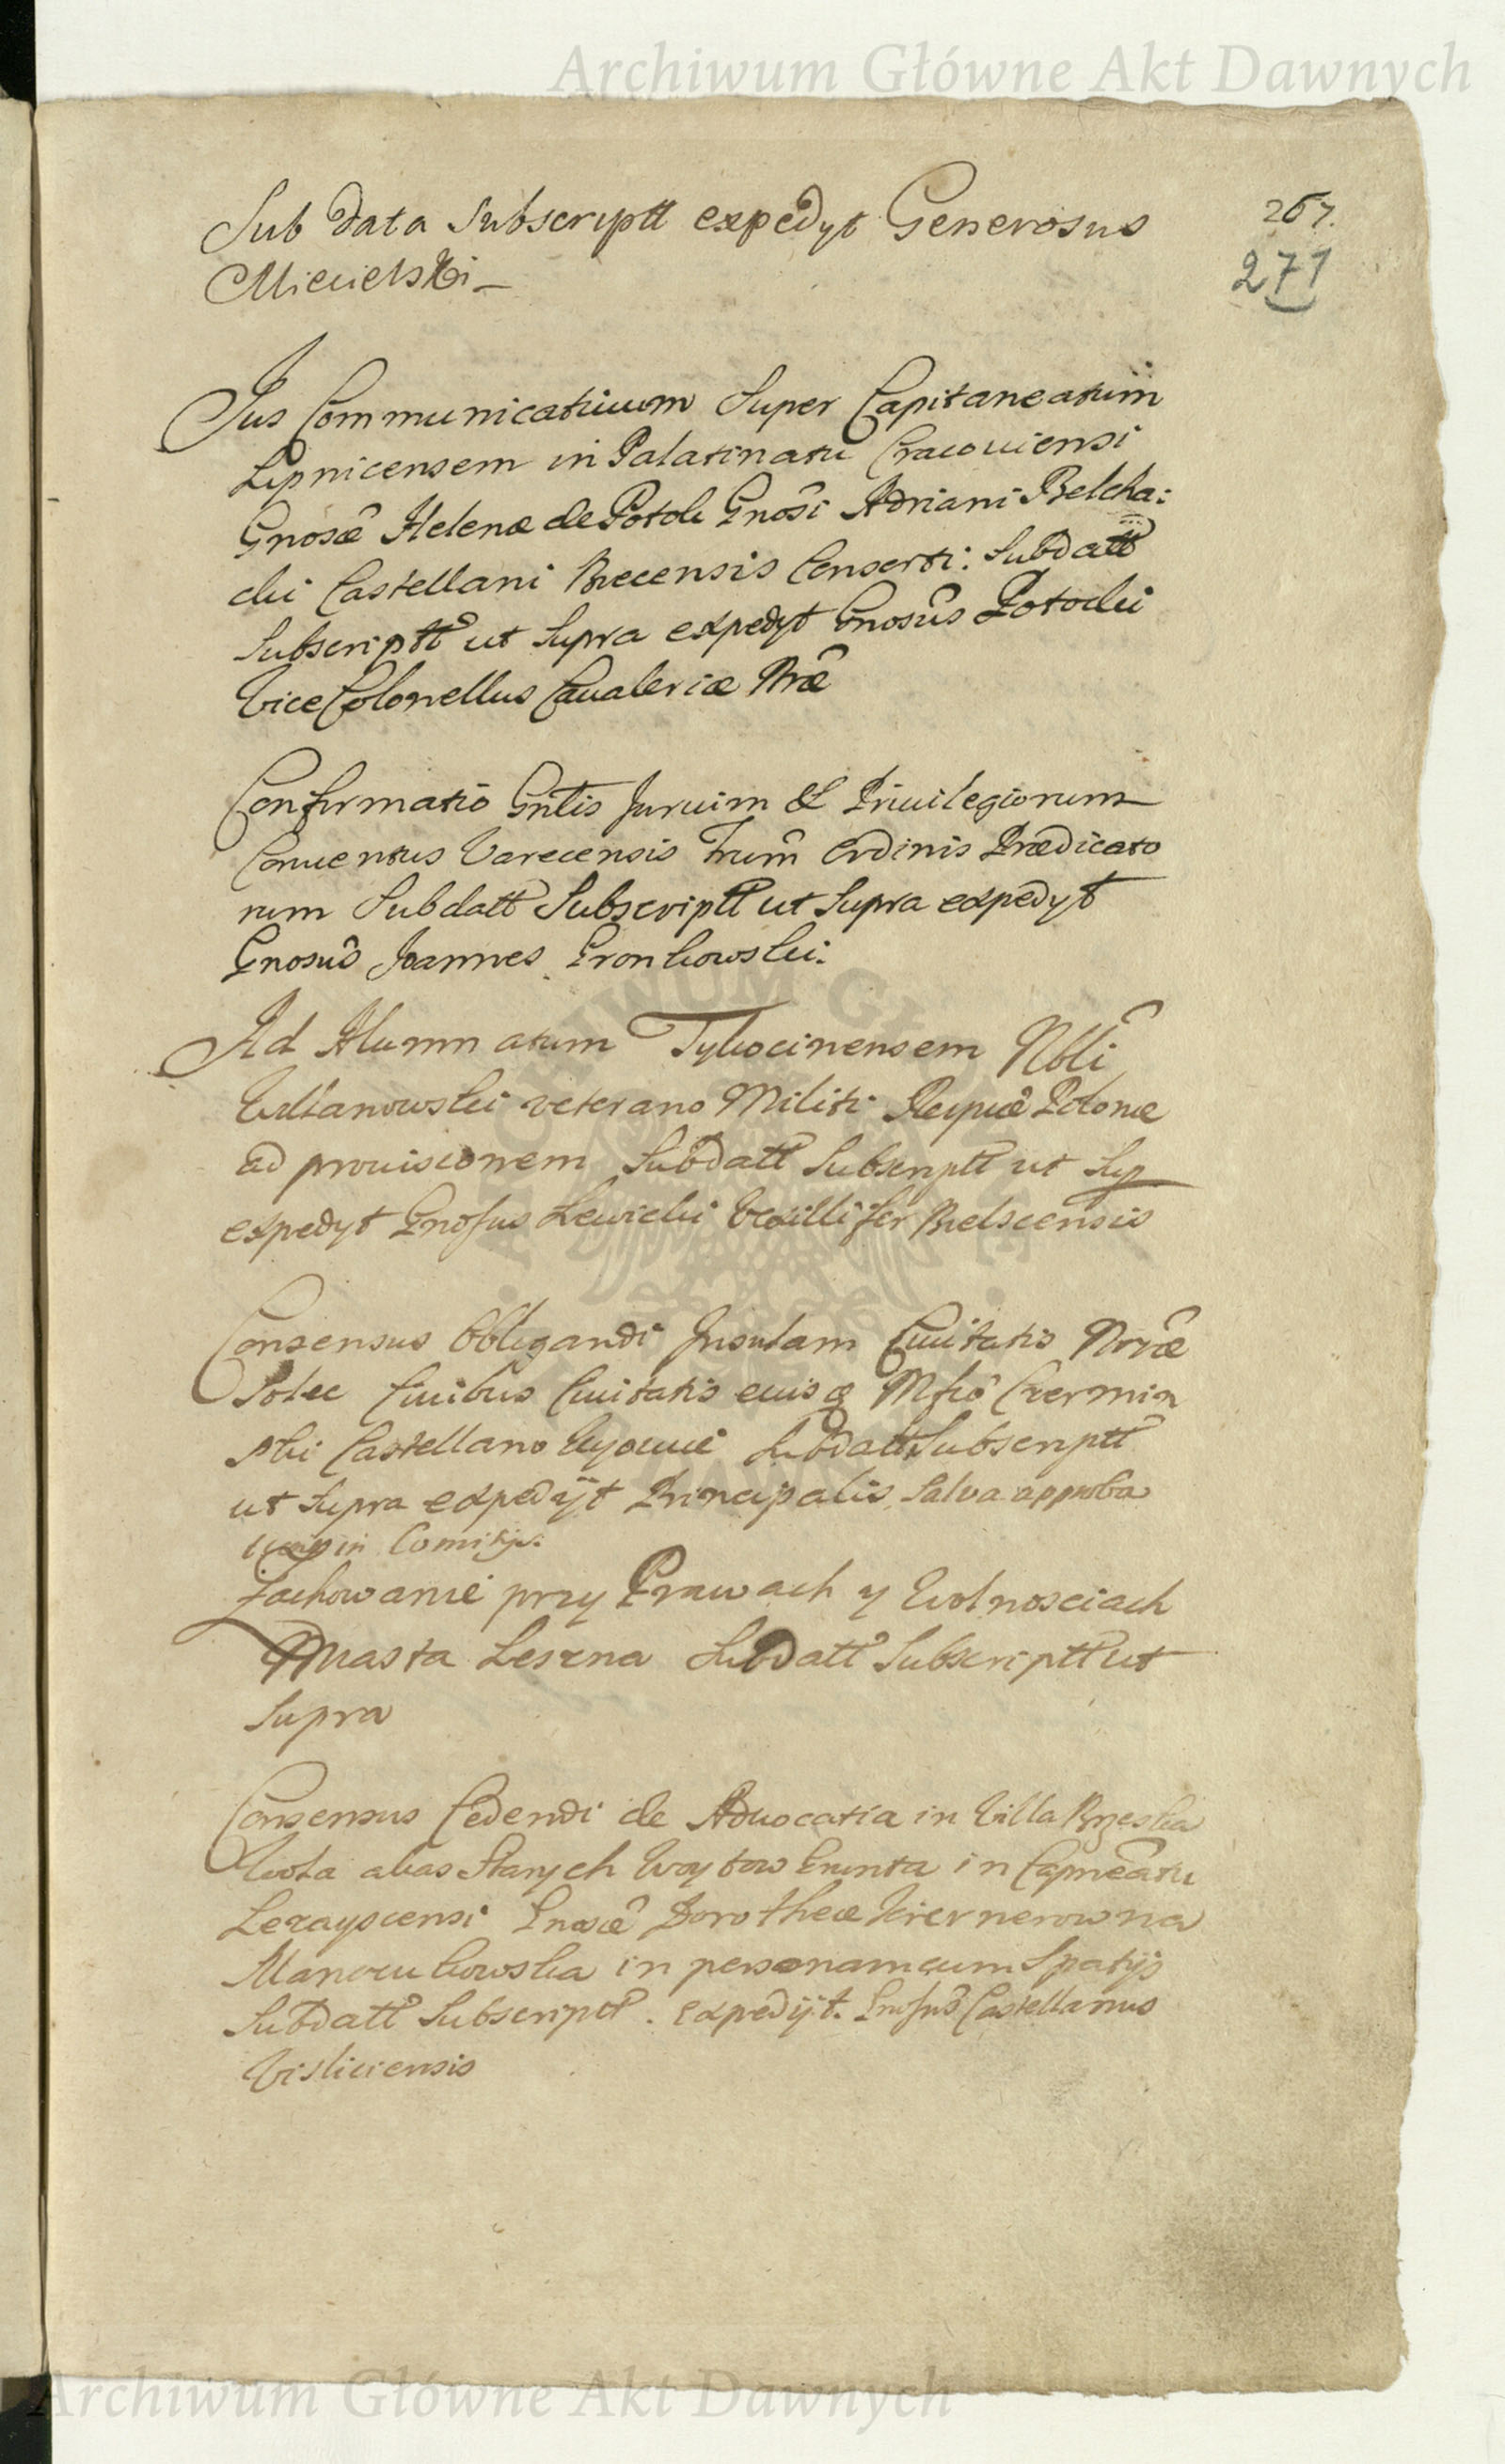 Archiwum Główne Akt Dawnych
267.
271
Sub data Subscriptt expedyt Generosus
Miecielski
Jus Communicativum Super Capitaneatum
Lipnicensem in Palatinatu Cracoviensi
Gnosæ Helenæ de Potok Gnosi Adriani Belcha:
cki Castellani Becensis Consorti: Subdatt
Subscriptt ut Supra expedyt Gnosus Potocki
Vice Colonellus Cavaleriæ Nræ
Confirmatio Gnlis Jurium & Privilegiorum
Conventus Varecensis Frum Ordinis Prædicato
rum Subdatt Subscriptt ut Supra expedyt
Gnosus Joannes Gronkowski:
Ad Alumnatum Tykocinensem Nbli
veterano Militi Reipuæ Polonæ
ad provisionem Subdatt Subscriptt ut Sup
expedyt Gnosus Lewicki Vexillifer Bielscensis
Consensus Obligandi Insulam Civitatis Nrræ
Solec Civibus Civitatis eiusq Mfco Czermin
ski Castellano Kijoviæ Subdatt Subscriptt
ut Supra expedijt Principalis Salva approba
in Comitijs.
Zachowanie przy Prawach y Wolnosciach
Miasta Leszna Subdatt Subscriptt ut
Supra
Consensus Cedendi de Advocatia in Villa Brzeska
Wola alias Starych Woytow Grunta in Capneatu
Lezayscensi Gnosæ Dorotheæ Kiernerowna
Manczukowska in personam cum Spatijs
Subdatt Subscriptt. expedijt. Gnosus Castellanus
Visliciensis
Archiwum Główne Akt Dawnych